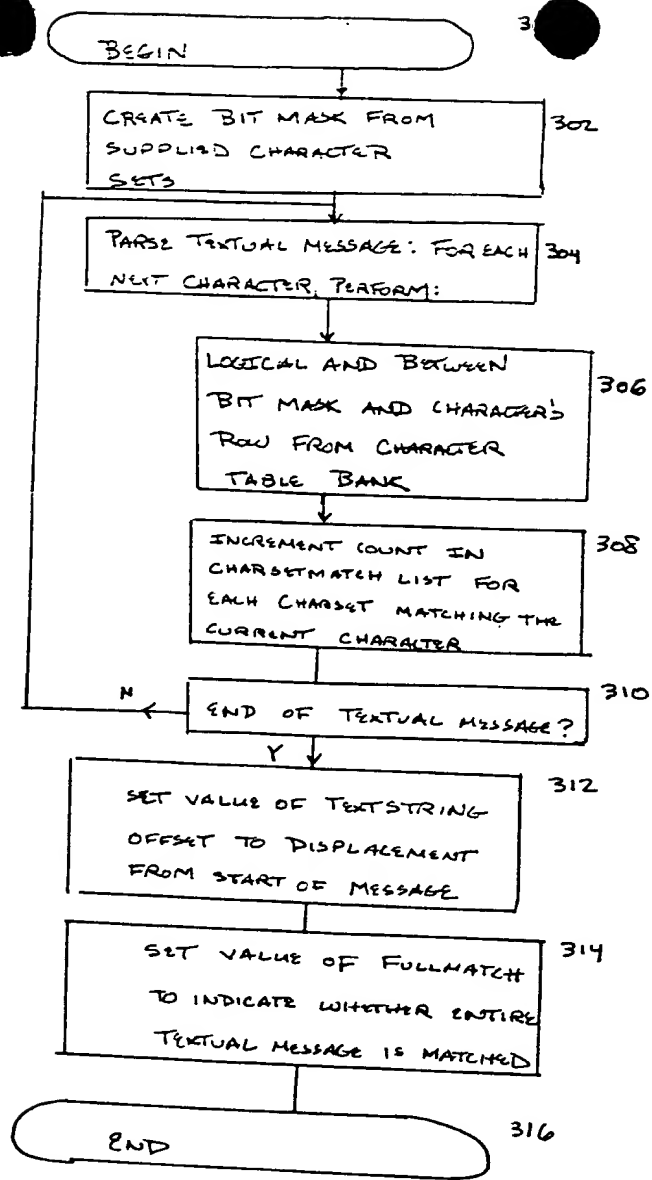 3
BEGIN
CREATE BIT MASK FROM
SUPPLIED CHARACTER
SETS
302
PARSE TEXTUAL MESSAGE: FOR EACH
NEXT CHARACTER, PERFORM:
304
LOGICAL AND BETWEEN
BIT MASK AND CHARACTER'S
ROW FROM CHARACTER
TABLE BANK
306
INCREMENT COUNT IN
CHARSETMATCH LIST FOR
EACH CHARSET MATCHING THE
CURRENT CHARACTER
308
N
END OF TEXTUAL MESSAGE?
310
Y
SET VALUE OF TEXTSTRING
OFFSET TO DISPLACEMENT
FROM START OF MESSAGE
312
SET VALUE OF FULLMATCH
TO INDICATE WHETHER ENTIRE
TEXTUAL MESSAGE IS MATCHED
314
END
316